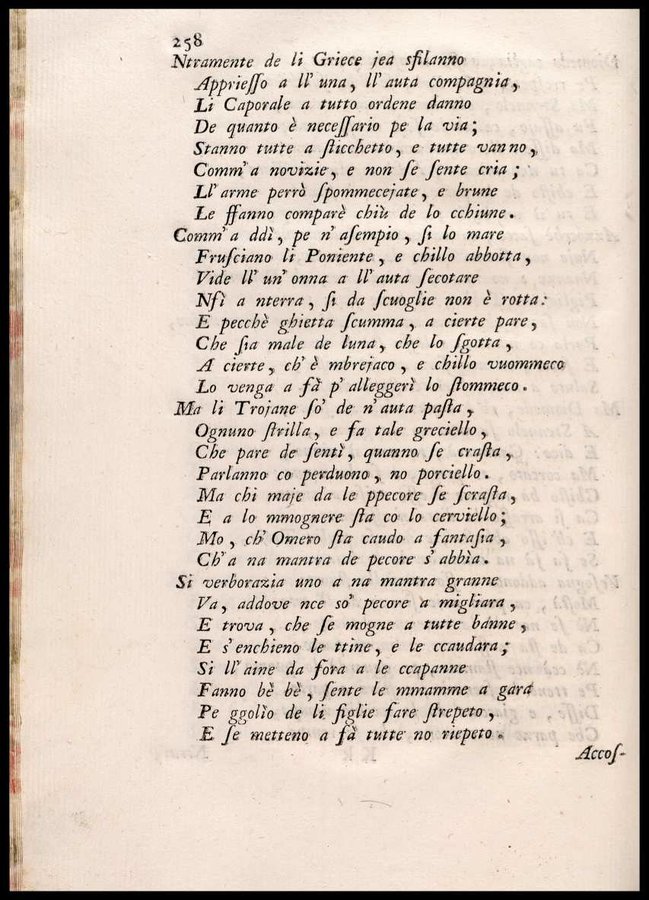 258
Ntramente de li Griece jea sfilanno
Apprieſſo a ll' una, ll' auta compagnia,
Li Caporale a tutto ordene danno
De quanto è neceſſario pe la via;
Stanno tutte a ſticchetto, e tutte vanno,
Comm' a novizie, e non ſe ſente cria;
Ll' arme perrò ſpommecejate, e brune
Le ffanno comparè chiù de lo cchiune.
Comm' a ddì, pe n' aſempio, ſi lo mare
Fruſciano li Poniente, e chillo abbotta,
Vide ll' un' onna a ll' auta ſecotare
Nſì a nterra, ſi da ſcuoglie non è rotta:
E pecchè ghietta ſcumma, a cierte pare,
Che ſia male de luna, che lo ſgotta,
A cierte, ch' è mbrejaco, e chillo vuommeco
Lo venga a fà p' alleggerì lo ſtommeco.
Ma li Trojane ſo' de n' auta paſta,
Ognuno ſtrilla, e fa tale greciello,
Che pare de ſentì, quanno ſe craſta,
Parlanno co perduono, no porciello.
Ma chi maje da le ppecore ſe ſcraſta,
E a lo mmognere ſta co lo cerviello;
Mo, ch' Omero ſta caudo a fantaſia,
Ch' a na mantra de pecore s' abbìa.
Si verborazia uno a na mantra granne
Va, addove nce so' pecore a migliara,
E trova, che ſe mogne a tutte banne,
E s' enchieno le ttine, e le ccaudara;
Si ll' aine da fora a le ccapanne
Fanno bè bè, ſente le mmamme a gara
Pe ggolìo de li figlie fare ſtrepeto,
E ſe metteno a fà tutte no riepeto.
Accoſ-